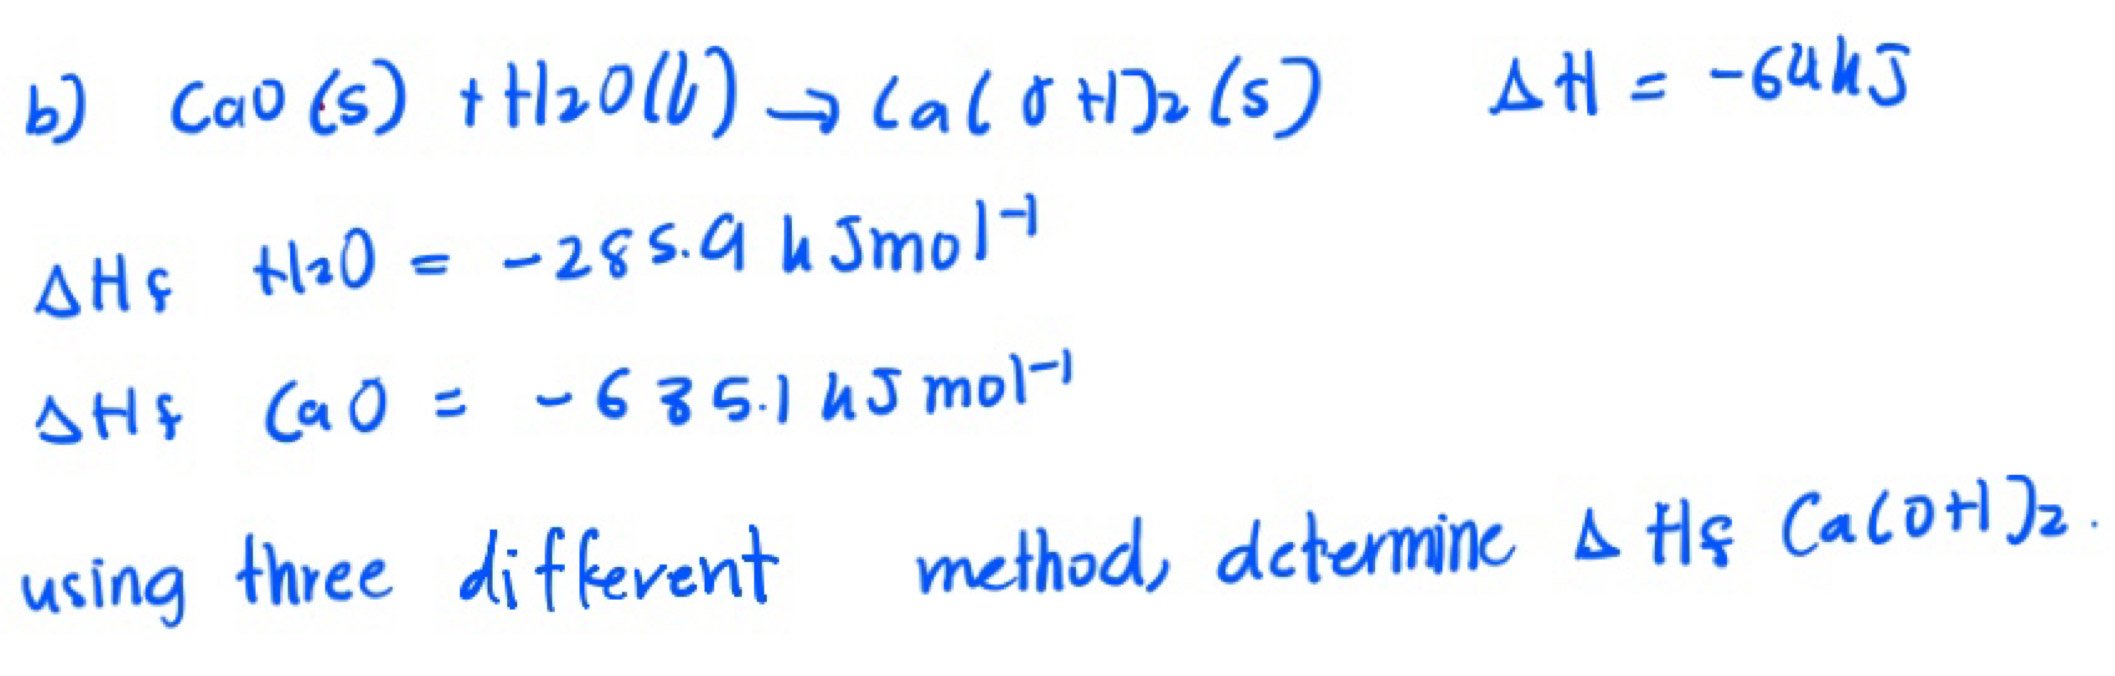 b) CaO (s) + H2O(l) → Ca(OH)2 (s) ΔH = -64kJ
ΔHf H2O = -285.9 kJmol-1
ΔHf CaO = -635.1 kJ mol-1
using three different method, determine Δ Hf Ca(OH)2.